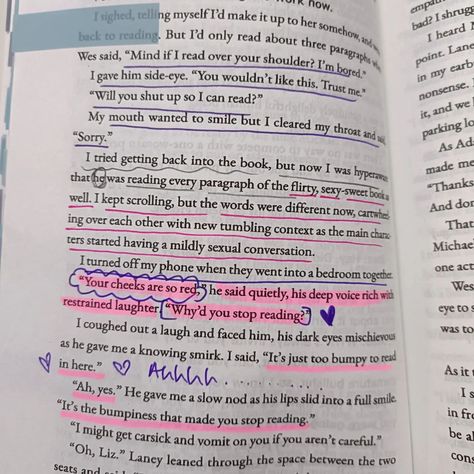 work now.
I sighed, telling myself I'd make it up to her somehow, and
back to reading. But I'd only read about three paragraphs
Wes said, "Mind if I read over your shoulder? I'm bored."
I gave him side-eye. "You wouldn't like this. Trust me."
"Will you shut up so I can read?"
My mouth wanted to smile but I cleared my throat and said,
"Sorry."
I tried getting back into the book, but now I was hyperaware
that he was reading every paragraph of the flirty, sexy-sweet book as
well. I kept scrolling, but the words were different now, cartwheel-
ing over each other with new tumbling context as the main charac-
ters started having a mildly sexual conversation.
I turned off my phone when they went into a bedroom together.
"Your cheeks are so red," he said quietly, his deep voice rich with
restrained laughter. "Why'd you stop reading?"
I coughed out a laugh and faced him, his dark eyes mischievous
as he gave me a knowing smirk. I said, "It's just too bumpy to read
in here."
Ahhhh ..........
"Ah, yes." He gave me a slow nod as his lips slid into a full smile.
"It's the bumpiness that made you stop reading."
"I might get carsick and vomit on you if you aren't careful."
"Oh, Liz." Laney leaned through the space between the two
seats and
bad? I shrugged
I heard
point. Lane
in my earb
nonsense.
it, and we
parking lo
As Ada
made me
"Thanks
And don
That
Michae
one act
Wes
eye to s
was to
As it
I
in fr
be al
cons